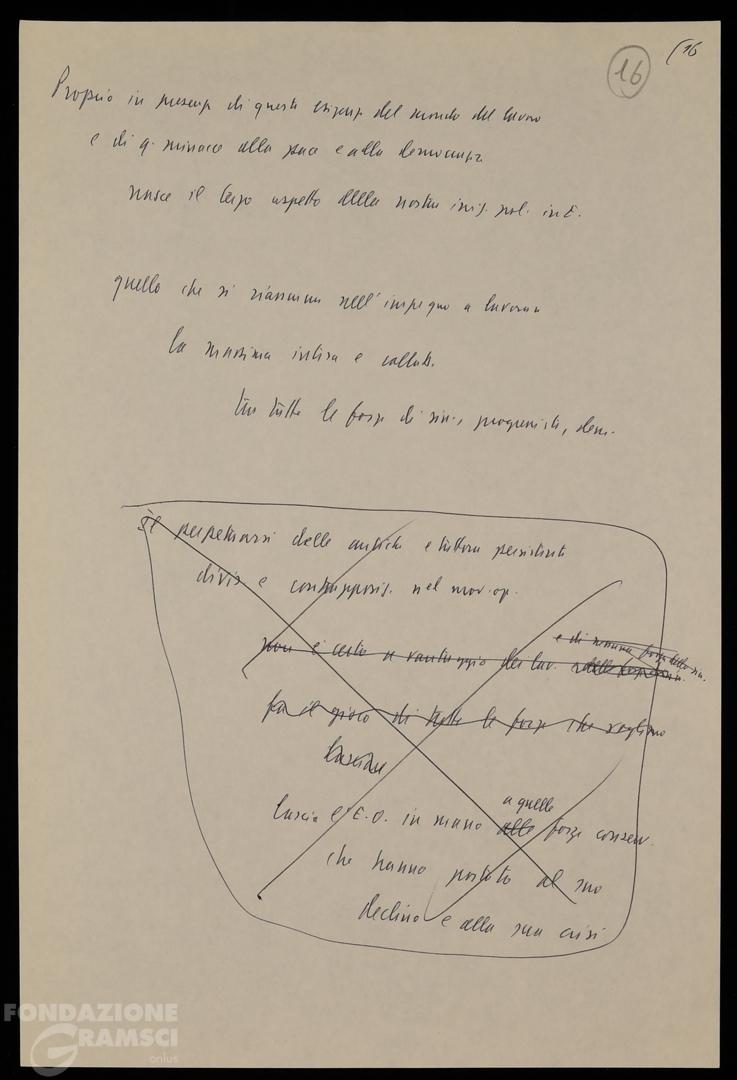 16
(16
Proprio in presenza di queste esigenze del mondo del lavoro
e di q. minacce alla pace e alla democrazia
nasce il terzo aspetto della nostra iniz. pol. in E.
quello che si riassume nell'impegno a lavorare
la massima intesa e collab.
tra tutte le forze di sin., progressiste, dem.
Il perpetuarsi delle antiche e tuttora persistenti
divis e contrapposiz. nel mov. op.
e di nessuna forza della sin.
non è certo a vantaggio dei lav.
fa il gioco di tutte le forze che vogliono
lasciare
a quelle
lascia l'E.O. in mano alle forze conserv.
che hanno portato al suo
declino e alla sua crisi
FONDAZIONE
GRAMSCI
onlus